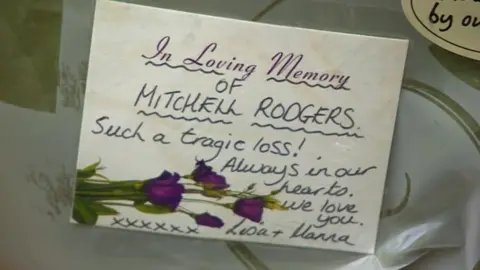 In Loving Memory
OF
MITCHELL RODGERS.
Such a tragic loss!
Always in our
hearts.
we love
you.
xxxxxx
Lisa + Hanna
by ou